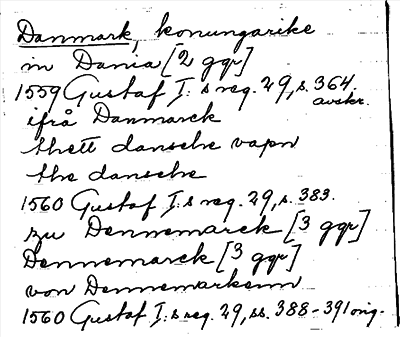 Danmark, konungarike
in Dania [2 ggr]
1559 Gustaf I:s reg. 29, s. 364.
avskr.
ifrå Danmarck
thett danscke vapn
the danscke
1560 Gustaf I:s reg. 29, s. 383.
zu Dennemarck [3 ggr]
Dennemarck [3 ggr]
von Dennemarkenn
1560 Gustaf I:s reg. 29, ss. 388-391 orig.